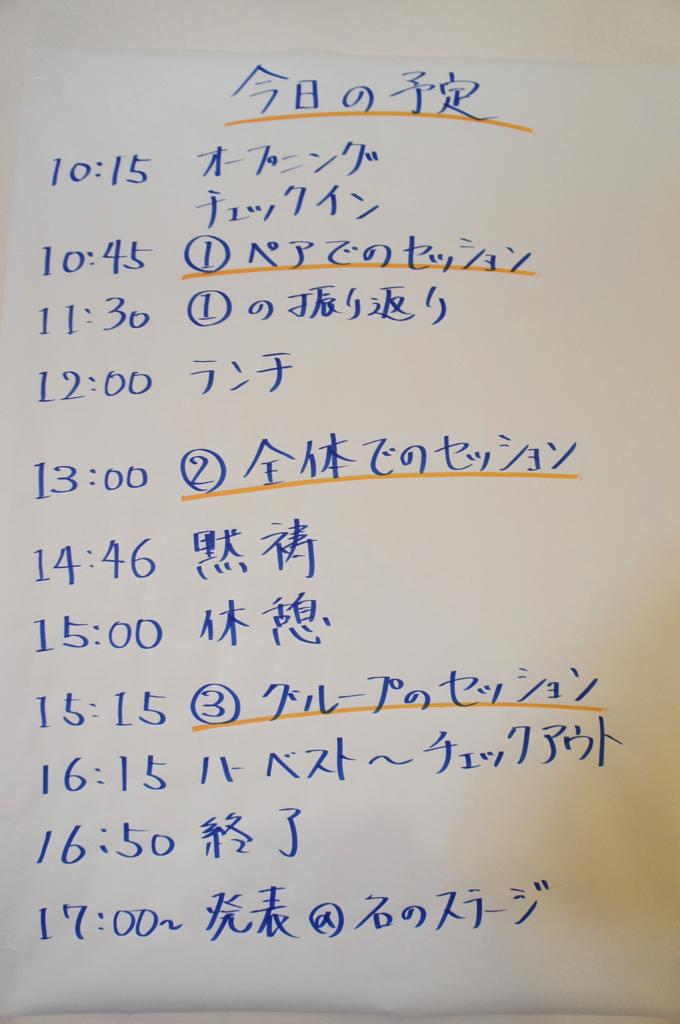 今日の予定
10:15 オープニング
チェックイン
10:45 ①ペアでのセッション
11:30 ①の振り返り
12:00 ランチ
13:00 ②全体でのセッション
14:46 黙祷
15:00 休憩
15:15 ③グループのセッション
16:15 ハーベスト〜チェックアウト
16:50 終了
17:00〜 発表@石のステージ